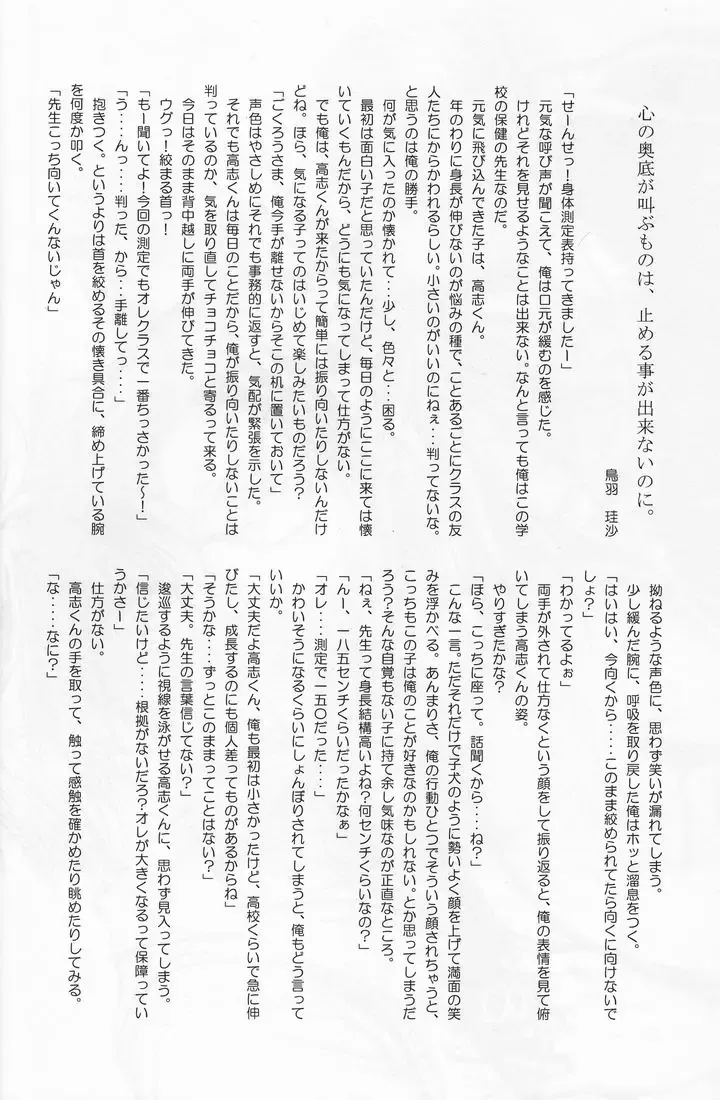 心の奥底が叫ぶものは、止める事が出来ないのに。
鳥羽　珪沙
「せーんせっ！身体測定表持ってきましたー」
元気な呼び声が聞こえて、俺は口元が緩むのを感じた。
けれどそれを見せるようなことは出来ない。なんと言っても俺はこの学
校の保健の先生なのだ。
元気に飛び込んできた子は、高志くん。
年のわりに身長が伸びないのが悩みの種で、ことあるごとにクラスの友
人たちにからかわれるらしい。小さいのがいいのにねぇ・・・判ってないな。
と思うのは俺の勝手。
何が気に入ったのか懐かれて・・・少し、色々と・・・困る。
最初は面白い子だと思っていたんだけど、毎日のようにここに来ては懐
いていくもんだから、どうにも気になってしまって仕方がない。
でも俺は、高志くんが来たからって簡単には振り向いたりしないんだけ
どね。ほら、気になる子ってのはいじめて楽しみたいものだろう？
「ごくろうさま、俺今手が離せないからそこの机に置いておいて」
声色はやさしめにそれでも事務的に返すと、気配が緊張を示した。
それでも高志くんは毎日のことだから、俺が振り向いたりしないことは
判っているのか、気を取り直してチョコチョコと寄って来る。
今日はそのまま背中越しに両手が伸びてきた。
ウグっ！絞まる首っ！
「もー聞いてよ！今回の測定でもオレクラスで一番ちっさかった〜！」
「う・・・んっ・・・判った、から・・・手離してっ・・・」
抱きつく。というよりは首を絞めるその懐き具合に、締め上げている腕
を何度か叩く。
「先生こっち向いてくんないじゃん」
拗ねるような声色に、思わず笑いが漏れてしまう。
少し緩んだ腕に、呼吸を取り戻した俺はホッと溜息をつく。
「はいはい、今向くから・・・・このまま絞められてたら向くに向けないで
しょ？」
「わかってるよぉ」
両手が外されて仕方なくという顔をして振り返ると、俺の表情を見て俯
いてしまう高志くんの姿。
やりすぎたかな？
「ほら、こっちに座って。話聞くから・・・・ね？」
こんな一言。ただそれだけで子犬のように勢いよく顔を上げて満面の笑
みを浮かべる。あんまりさ、俺の行動ひとつでそういう顔されちゃうと、
こっちもこの子は俺のことが好きなのかもしれない。とか思ってしまうだ
ろう？そんな自覚もない子に持て余し気味なのが正直なところ。
「ねぇ、先生って身長結構高いよね？何センチくらいなの？」
「んー、一八五センチくらいだったかなぁ」
「オレ・・・・測定で一五〇だった・・・・」
かわいそうになるくらいにしょんぼりされてしまうと、俺もどう言って
いいか。
「大丈夫だよ高志くん、俺も最初は小さかったけど、高校くらいで急に伸
びたし、成長するのにも個人差ってものがあるからね」
「そうかな・・・ずっとこのままってことはない？」
「大丈夫。先生の言葉信じてない？」
逡巡するように視線を泳がせる高志くんに、思わず見入ってしまう。
「信じたいけど・・・・根拠がないだろ？オレが大きくなるって保障ってい
うかさー」
仕方がない。
高志くんの手を取って、触って感触を確かめたり眺めたりしてみる。
「な・・・・なに？」